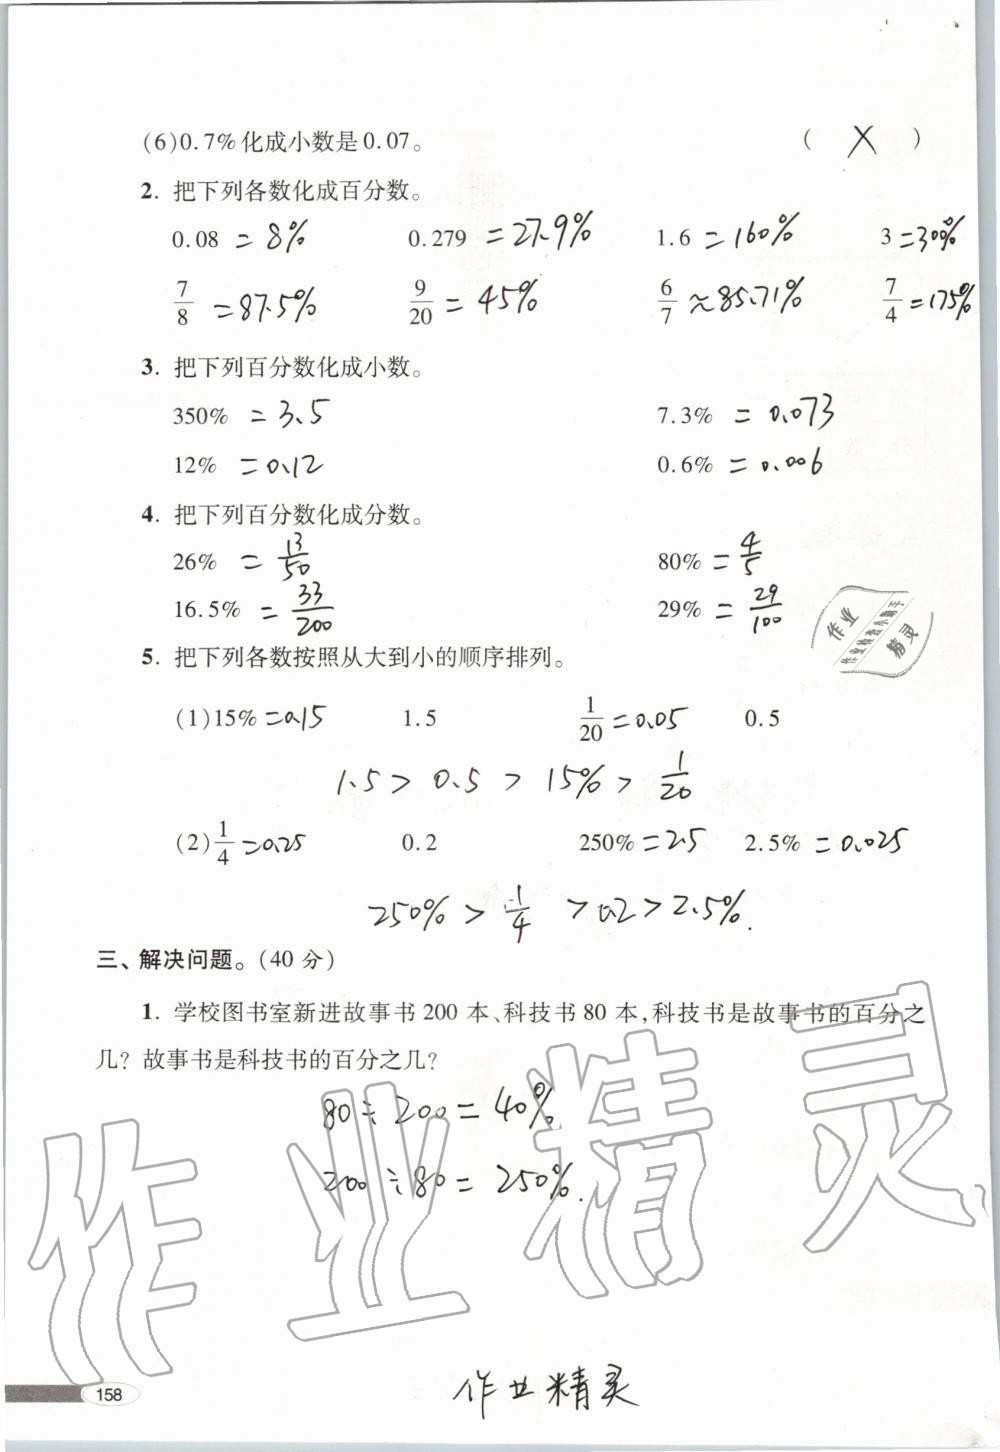 (6)0.7%化成小数是0.07。 ( X )
2. 把下列各数化成百分数。
0.08 = 8% 0.279 = 27.9% 1.6 = 160% 3 = 300%
7/8 = 87.5% 9/20 = 45% 6/7 ≈ 85.71% 7/4 = 175%
3. 把下列百分数化成小数。
350% = 3.5 7.3% = 0.073
12% = 0.12 0.6% = 0.006
4. 把下列百分数化成分数。
26% = 13/50 80% = 4/5
16.5% = 33/200 29% = 29/100
5. 把下列各数按照从大到小的顺序排列。
(1)15% = 0.15 1.5 1/20 = 0.05 0.5
1.5 > 0.5 > 15% > 1/20
(2)1/4 = 0.25 0.2 250% = 2.5 2.5% = 0.025
250% > 1/4 > 0.2 > 2.5%.
三、解决问题。(40 分)
1. 学校图书室新进故事书 200 本、科技书 80 本,科技书是故事书的百分之
几? 故事书是科技书的百分之几?
80 ÷ 200 = 40%
200 ÷ 80 = 250%.
作业精灵
158
作业精灵
作业
精灵